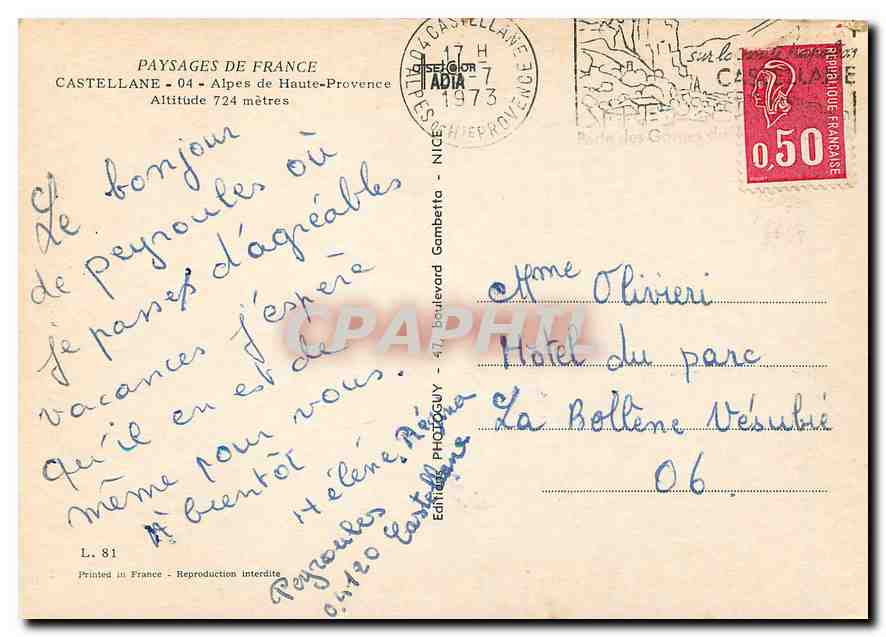 PAYSAGES DE FRANCE
CASTELLANE - 04 - Alpes de Haute-Provence
Altitude 724 mètres
Le bonjour
de peyroules où
je passes d'agréables
vacances j'espère
qu'il en est de
même pour vous.
A bientôt
Hélène Régina
Peyroules
04120 Castellane
L. 81
Printed in France - Reproduction interdite
Editions PHOTOGUY - 47, boulevard Gambetta - NICE
04 CASTELLANE
17 H
-7
1973
ALPES DE HTE PROVENCE
DELCOR
ADIA
sur la route Napoléon
CASTELLANE
Porte des Gorges du
REPUBLIQUE FRANCAISE
0,50
Mme Olivieri
Hôtel du parc
La Bollène Vésubie
06
CPAPHIL